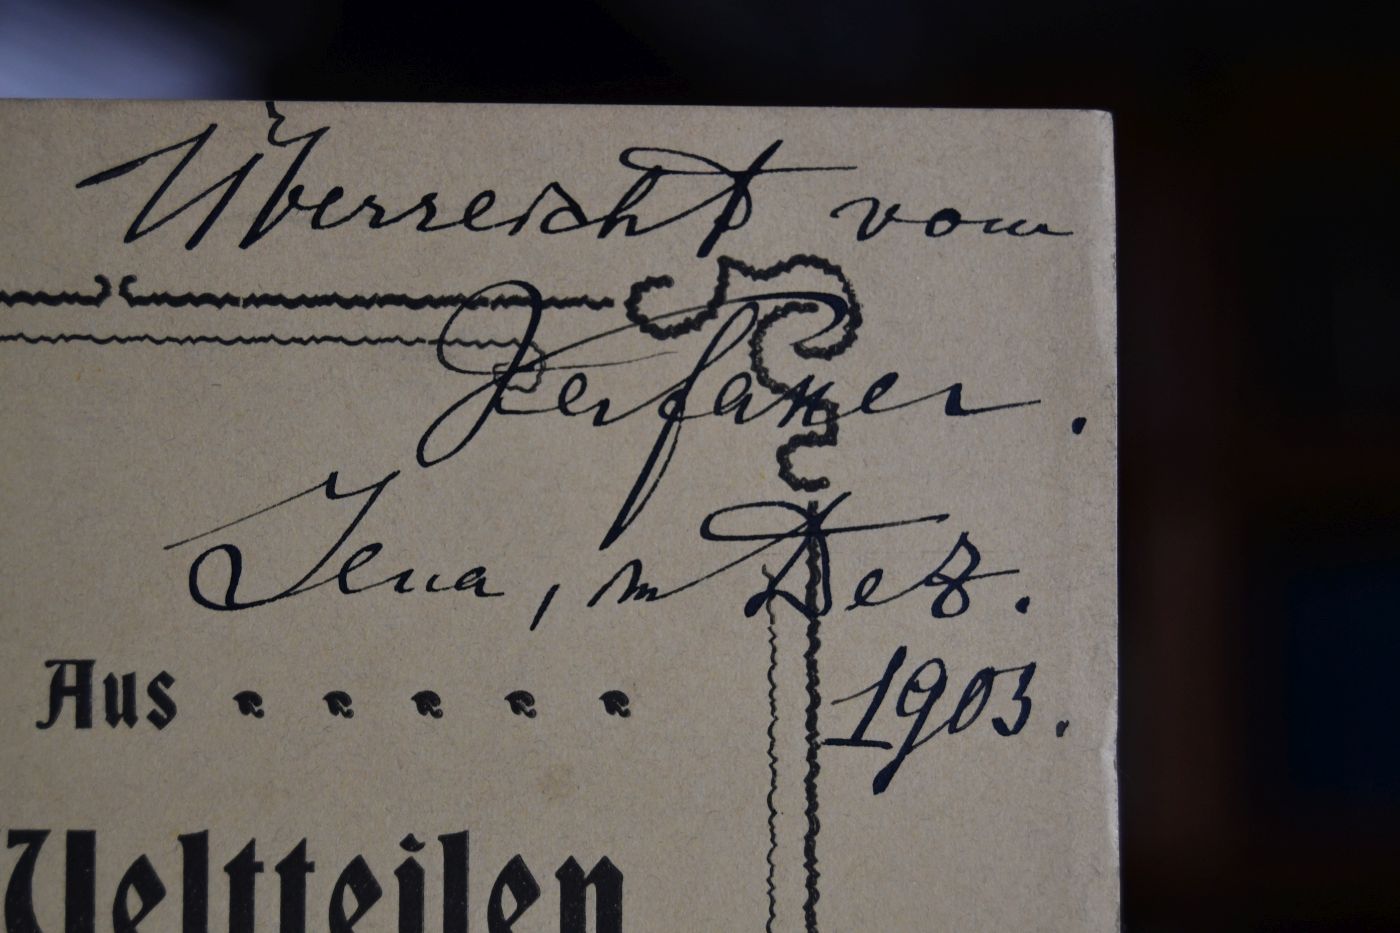 Überreicht vom
Verfasser.
Jena, im Dez.
1903.
Aus
Weltteilen